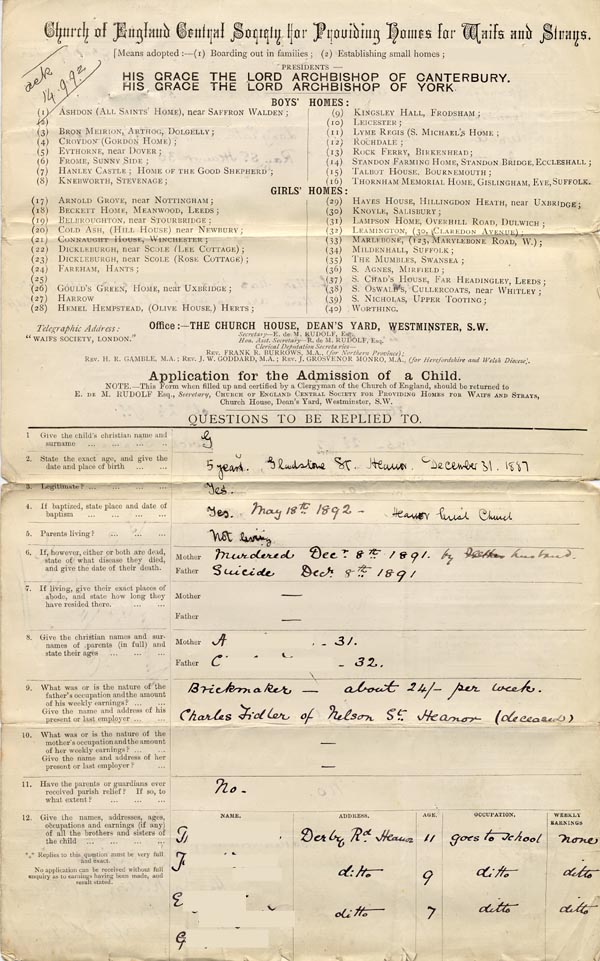 Church of England Central Society for Providing Homes for Waifs and Strays.
[Means adopted:—(1) Boarding out in families; (2) Establishing small homes;
ack
14.9.92
PRESIDENTS—
HIS GRACE THE LORD ARCHBISHOP OF CANTERBURY.
HIS GRACE THE LORD ARCHBISHOP OF YORK.
BOYS' HOMES:
(1) ASHDON (ALL SAINTS' HOME), near SAFFRON WALDEN;
(2)
(3) BRON MEIRION, ARTHOG, DOLGELLY;
(4) CROYDON (GORDON HOME);
(5) EYTHORNE, near DOVER;
(6) FROME, SUNNY SIDE;
(7) HANLEY CASTLE; HOME OF THE GOOD SHEPHERD;
(8) KNEBWORTH, STEVENAGE;
(9) KINGSLEY HALL, FRODSHAM;
(10) LEICESTER;
(11) LYME REGIS (S. MICHAEL'S HOME;
(12) ROCHDALE;
(13) ROCK FERRY, BIRKENHEAD;
(14) STANDON FARMING HOME, STANDON BRIDGE, ECCLESHALL;
(15) TALBOT HOUSE, BOURNEMOUTH;
(16) THORNHAM MEMORIAL HOME, GISLINGHAM, EYE, SUFFOLK.
GIRLS' HOMES:
(17) ARNOLD GROVE, near NOTTINGHAM;
(18) BECKETT HOME, MEANWOOD, LEEDS;
(19) BELBROUGHTON, near STOURBRIDGE;
(20) COLD ASH, (HILL HOUSE) near NEWBURY;
(21) CONNAUGHT HOUSE, WINCHESTER;
(22) DICKLEBURGH, near SCOLE (LEE COTTAGE);
(23) DICKLEBURGH, near SCOLE (ROSE COTTAGE);
(24) FAREHAM, HANTS;
(25)
(26) GOULD'S GREEN, HOME, near UXBRIDGE;
(27) HARROW
(28) HEMEL HEMPSTEAD, (OLIVE HOUSE,) HERTS;
(29) HAYES HOUSE, HILLINGDON HEATH, near UXBRIDGE;
(30) KNOYLE, SALISBURY;
(31) LAMPSON HOME, OVERHILL ROAD, DULWICH;
(32) LEAMINGTON, (30, CLAREDON AVENUE);
(33) MARLEBONE, (123, MARYLEBONE ROAD, W.);
(34) MILDENHALL, SUFFOLK;
(35) THE MUMBLES, SWANSEA;
(36) S. AGNES, MIRFIELD;
(37) S. CHAD'S HOUSE, FAR HEADINGLEY, LEEDS;
(38) S. OSWALD'S, CULLERCOATS, near WHITLEY;
(39) S. NICHOLAS, UPPER TOOTING;
(40) WORTHING.
Telegraphic Address:
"WAIFS SOCIETY, LONDON."
Office:—THE CHURCH HOUSE, DEAN'S YARD, WESTMINSTER, S.W.
Secretary—E. DE M. RUDOLF, Esq.
Hon. Asst. Secretary—R. DE M. RUDOLF, Esq.
Clerical Deputation Secretaries—
REV. FRANK R. BURROWS, M.A., (for Northern Province);
REV. H. R. GAMBLE, M.A.; REV. J. W. GODDARD, M.A.; REV. J. GROSVENOR MONRO, M.A., (for Herefordshire and Welsh Diocese).
Application for the Admission of a Child.
NOTE.—This Form when filled up and certified by a Clergyman of the Church of England, should be returned to
E. DE M. RUDOLF Esq., Secretary, CHURCH OF ENGLAND CENTRAL SOCIETY FOR PROVIDING HOMES FOR WAIFS AND STRAYS,
Church House, Dean's Yard, Westminster, S.W.
QUESTIONS TO BE REPLIED TO.
1 Give the child's christian name and
surname ... ... ... ...
G
2. State the exact age, and give the
date and place of birth ... ...
5 years. Gladstone St. Heanor. December 31. 1887
3. Legitimate? ... ... ... ...
Yes.
4. If baptized, state place and date of
baptism ... ... ... ...
Yes. May 18th 1892 - Heanor Church
5. Parents living? ... ... ...
Not living
6. If, however, either or both are dead,
state of what disease they died,
and give the date of their death.
Mother Murdered Decr 8th 1891. by husband.
Father Suicide Decr 8th 1891
7. If living, give their exact places of
abode, and state how long they
have resided there. ... ...
Mother —
Father —
8. Give the christian names and sur-
names of parents (in full) and
state their ages ... ... ...
Mother A - 31.
Father C - 32.
9. What was or is the nature of the
father's occupation and the amount
of his weekly earnings? ...
Give the name and address of his
present or last employer ... ...
Brickmaker — about 24/- per week.
Charles Fidler of Nelson St. Heanor (deceased)
10. What was or is the nature of the
mother's occupation and the amount
of her weekly earnings? ... ...
Give the name and address of her
present or last employer? ...
—
—
11. Have the parents or guardians ever
received parish relief? If so, to
what extent? ... ... ...
No.
12. Give the names, addresses, ages,
occupations and earnings (if any)
of all the brothers and sisters of
the child ... ... ... ...
*** Replies to this question must be very full
and exact.
No application can be received without full
enquiry as to earnings having been made, and
result stated.
NAME. ADDRESS. AGE. OCCUPATION. WEEKLY EARNINGS
Derby Rd Heanor 11 goes to School none
F ditto 9 ditto ditto
E ditto 7 ditto ditto
G